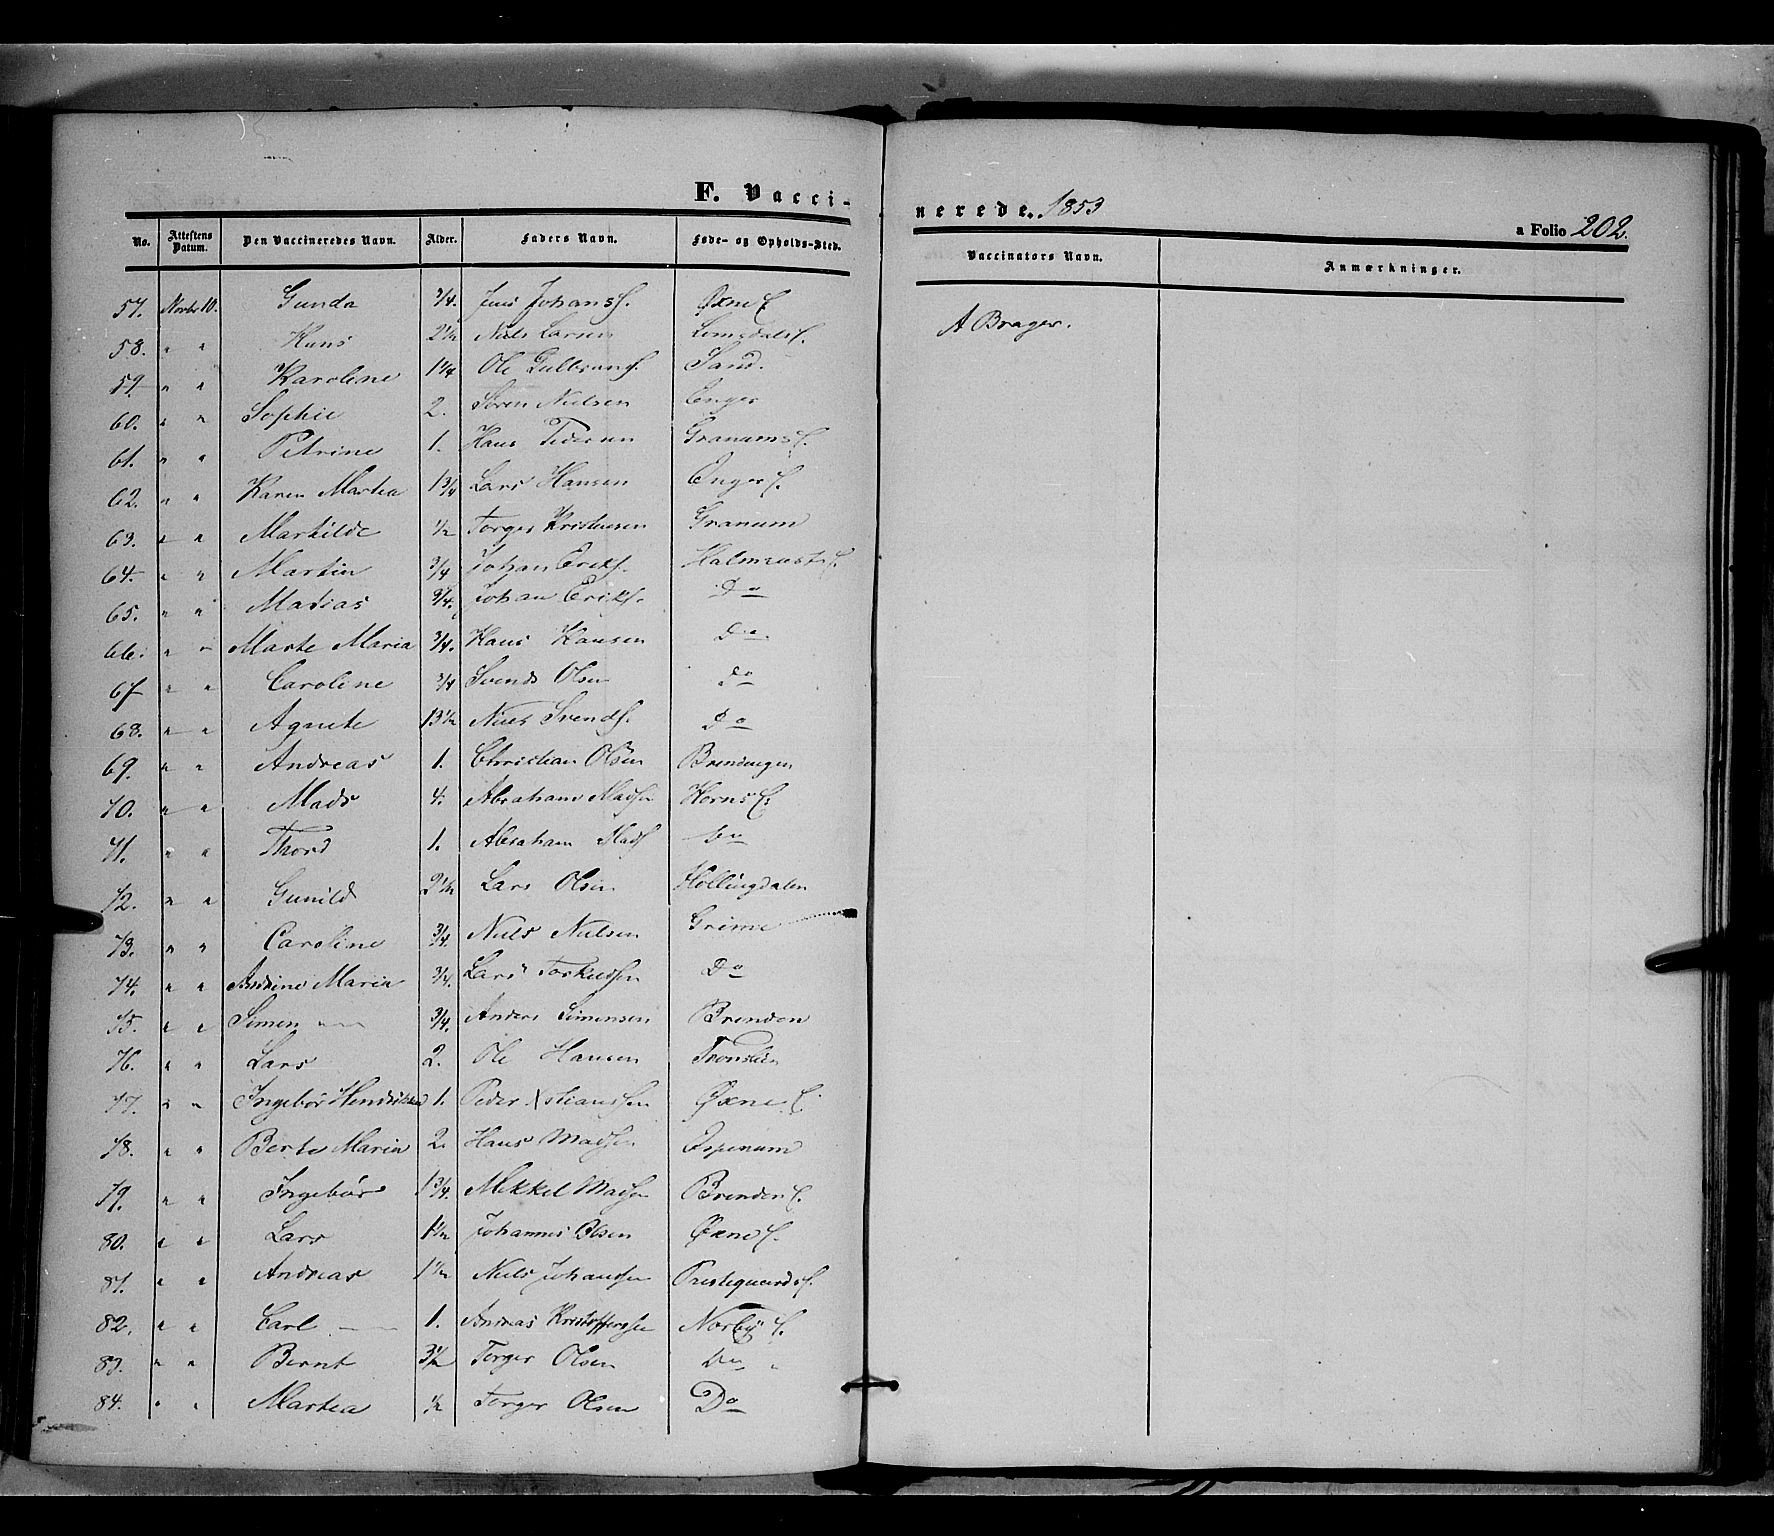 F. Vacci-
No. Attestens Datum. Den Vaccineredes Navn. Alder. Faders Navn. Føde- og Opholds-Sted.
57. Novbr 10. Gunda 3/4. Jens Johansf. Øxne E
58. " " Hans 2 1/2 Niels Larsen
59. " " Karoline 1 1/4 Ole Gulbransf. Sand.
60. " " Sophie 2. Søren Nielsen Enger
61. " " Petrine 1. Hans Pedersen Granums E.
62. " " Karen Martea 1 3/4 Lars Hansen Enger E.
63. " " Mathilde 1/2 Torger Kristensen Granum
64. " " Martin 3/4 Johan Eriks. Halmrast E.
65. " " Matias Johan Eriks. Do
66. " " Marte Maria 3/4. Hans Hansen Do.
67 " " Caroline 3/4 Svends Olsen Do
68. " " Agnete 13 1/2 Niels Svends. Do
69. " " Andreas 1. Christian Olsen Brendingen
70. " " Mads 4. Abraham Madsen Horns E.
71. " " Thord 1. Abraham Mads Do
72. " " Gunild 2 1/2 Lars Olsen Hollingdalen
73. " " Caroline 3/4. Niels Nielsen Grime
74. " " Andrine Maria 3/4. Lars Torkildsen Do
75. " " Simen 3/4. Anders Simensen Brenden
76. " " Lars 2. Ole Hansen Tronslien
77. " " Ingebør 1. Peder Xstianssen Øxne E.
78. " " Berte Maria 2. Hans Madsen Espenum
79. " " Ingebør 1 3/4. Mikkel Madsen Brenden E.
80. " " Lars 1 1/2 Johannes Olsen Øxne E.
81. " " Andreas 1 1/2 Niels Johansen Prestegaards E.
82. " " Carl 1. Andreas Kristoffersen Norby E.
83. " " Bernt 3 1/2 Torger Olsen Do "
84. " " Martea 1/2 Torger Olsen Do
nerede. 1853
a Folio 202.
Vaccinators Navn. Anmærkninger.
A Brager.